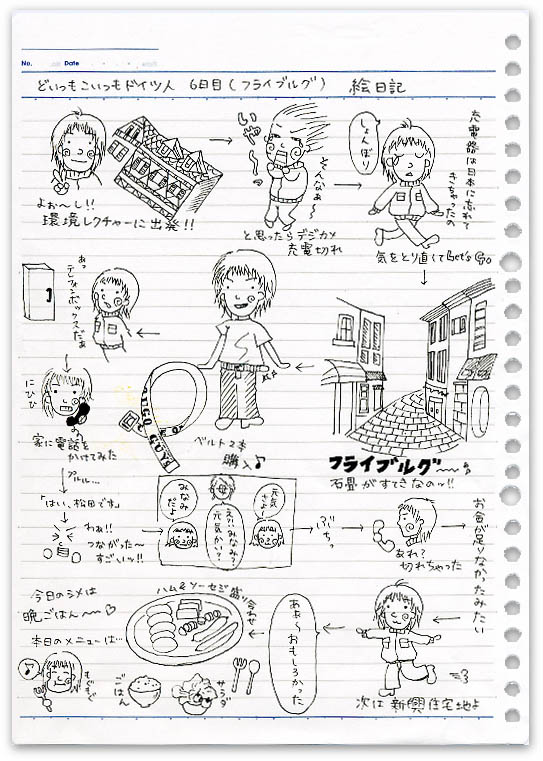 No.
Date
どいつもこいつもドイツ人 6日目(フライブルグ) 絵日記
よぉ〜し!!
環境レクチャーに出発!!
いや〜
そんなぁ〜
と思ったらデジカメ
充電切れ
しょんぼり
充電器は日本に忘れて
きちゃったの
気をとり直してLet's Go
フライブルグ〜〜
石畳がすてきなのッ!!
ベルト2本
購入♪
あっ
テレフォンボックスだぁ
にひひ
家に電話を
かけてみた
プルル…
「はい、松田です」
わぁ!!
つながった〜
すご〜いッ!!
みなみ
だよ
えっ!みなみ?
元気かい?
元気
さよー
ぶちっ
あれ?
切れちゃった
お金が足りなかったみたい
次は新興住宅地よ
あぁ〜おもしろかった
今日のシメは
晩ごはん〜〜♡
本日のメニューは…
ハム&ソーセージ盛り合わせ
♪
もぐもぐ
ごはん
サラダ